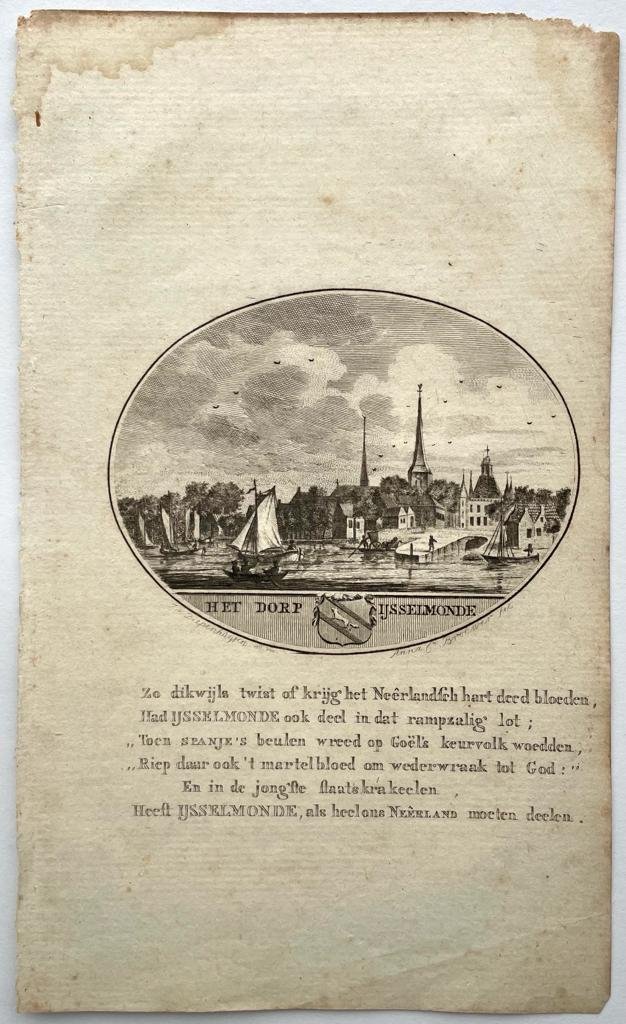 HET DORP IJSSELMONDE
Anna C. Brouwer fec
Zo dikwijls twist of krijg het Neêrlandsch hart deed bloeden,
Had IJSSELMONDE ook deel in dat rampzalig lot;
„Toen SPANJE'S beulen wreed op Goël's keurvolk woedden,
„Riep daar ook 't martelbloed om wederwraak tot God:"
En in de jongste staatskrakeelen
Heeft IJSSELMONDE, als heel ons NEÊRLAND moeten deelen.